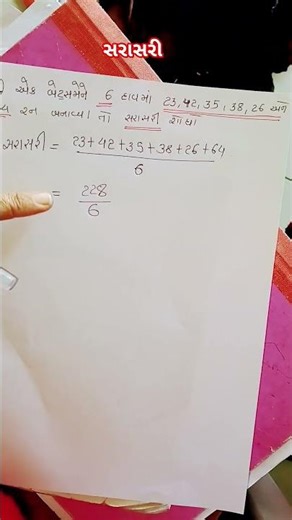 સરાસરી
એક બેટ્સમેને 6 દાવમાં 23, 42, 35, 38, 26 અને
રન બનાવ્યા તો સરાસરી શોધો
સરાસરી = 23+42+35+38+26+64
6
= 228
6